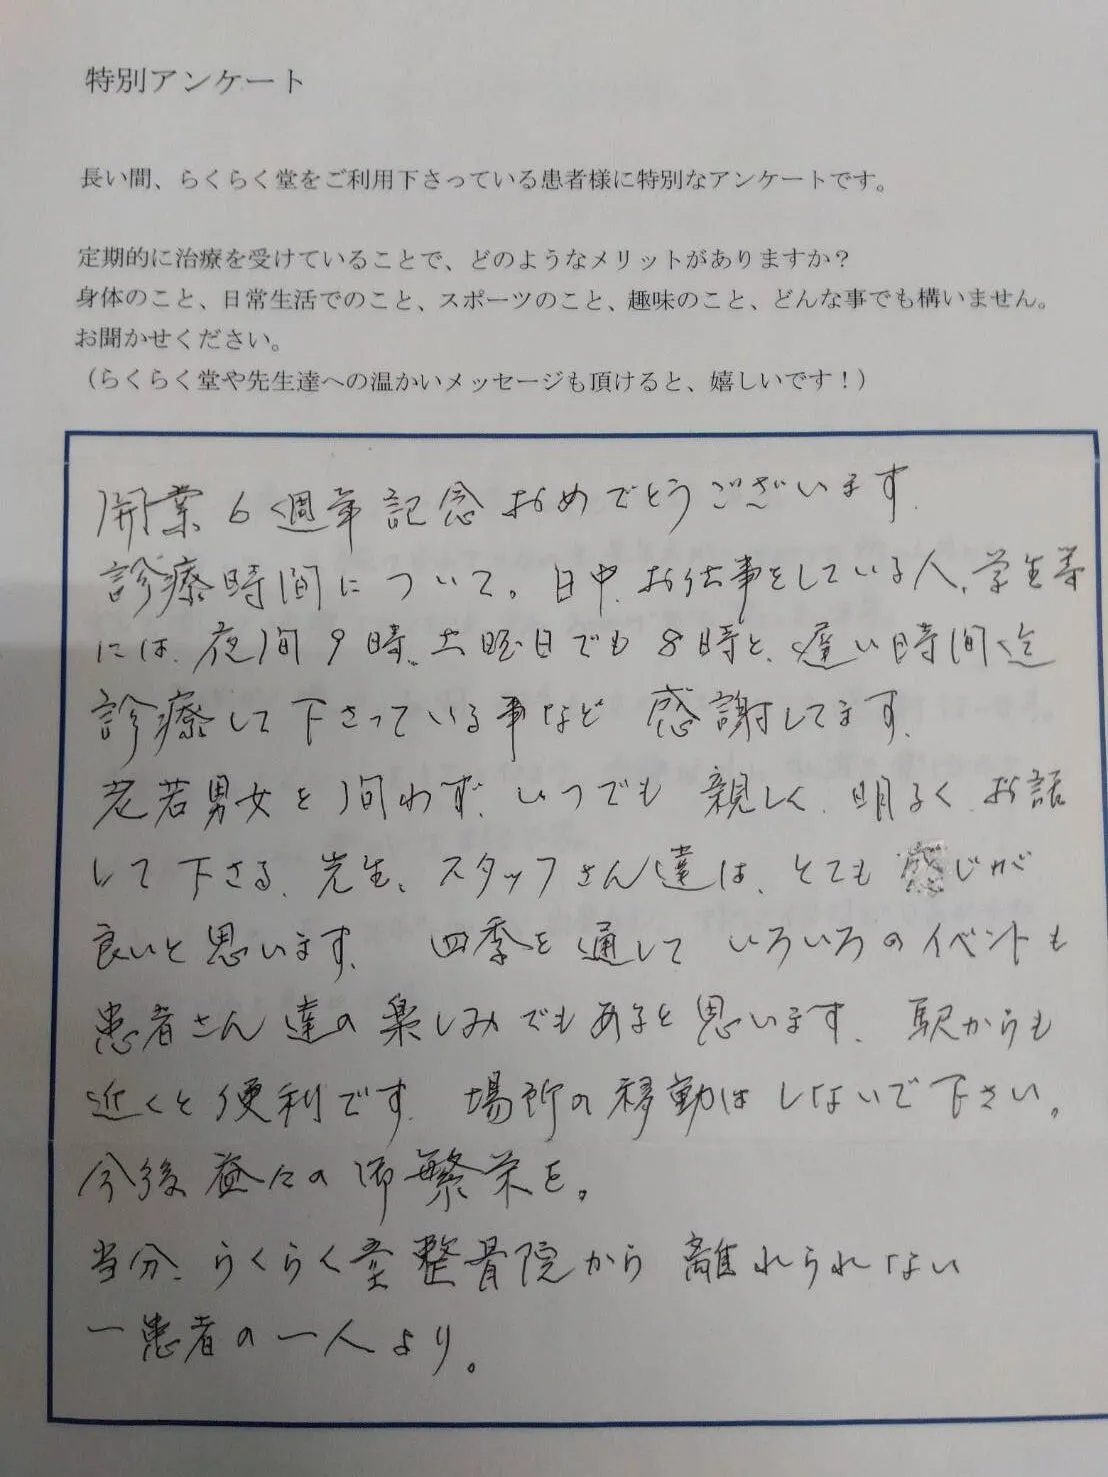 特別アンケート
長い間、らくらく堂をご利用下さっている患者様に特別なアンケートです。
定期的に治療を受けていることで、どのようなメリットがありますか？
身体のこと、日常生活でのこと、スポーツのこと、趣味のこと、どんな事でも構いません。
お聞かせください。
（らくらく堂や先生達への温かいメッセージも頂けると、嬉しいです！）
開業6週年記念おめでとうございます.
診療時間について。日中、お仕事をしている人、学生等
には、夜間9時、土曜日でも8時と、遅い時間迄
診療して下さっている事など感謝してます.
老若男女を問わず、いつでも親しく、明るく、お話
して下さる、先生、スタッフさん達は、とても感じが
良いと思います. 四季を通して いろいろのイベントも
患者さん達の楽しみでもあると思います. 駅からも
近くと便利です. 場所の移動はしないで下さい。
今後益々の御繁栄を。
当分、らくらく堂整骨院から離れられない
一患者の一人より。